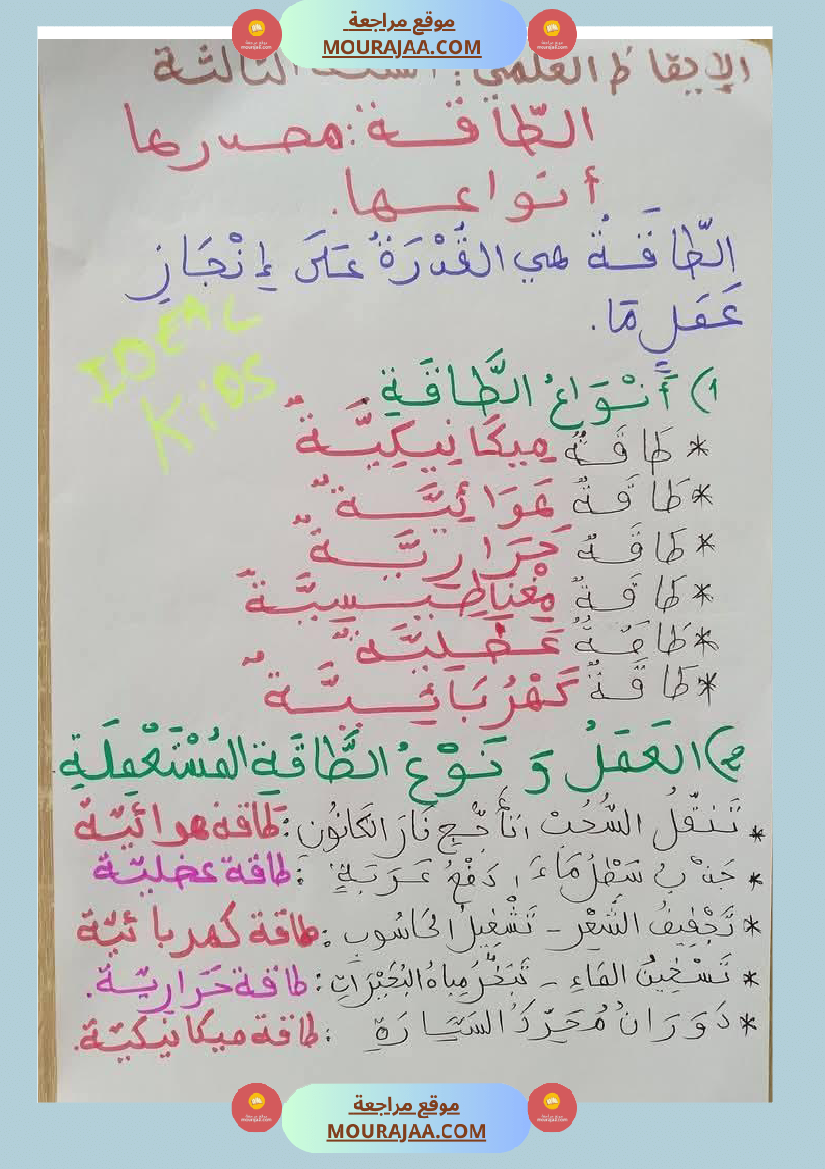 موقع مراجعة
MOURAJAA.COM
الإيقاظ العلمي: السنة الثالثة
الطّاقة: مصدرها
أنواعها.
الطّاقَةُ هي القُدْرَةُ عَلَى إِنْجَازِ
عَمَلٍ مَّا.
IDEAL
KiDS
1) أَنْوَاعُ الطَّاقَةِ
* طَاقَةٌ مِيكَانِيكِيَّةٌ
* طَاقَةٌ هَوَائِيَّةٌ
* طَاقَةٌ حَرَارِيَّةٌ
* طَاقَةٌ مِغْنَاطِيسِيَّةٌ
* طَاقَةٌ عَضَلِيَّةٌ
* طَاقَةٌ كَهْرُبَائِيَّةٌ
2) العَمَلُ وَ نَوْعُ الطَّاقَةِ المُسْتَعْمَلَةِ
* تَنَقُّلُ السُّحُبْ، تَأَجُّجِ نَارَ الكَانُون: طاقة هوائيّة
* جَذْبُ سَطْلُ مَاءَ، دَفْعُ عَرَبَةٍ: طاقة عضليّة
* تَجْفِيفُ الشَّعْرِ - تَشْغِيلُ الحَاسُوبِ: طاقة كهربائيّة
* تَسْخِينُ المَاءِ - تَبَخُّرُ مِيَاهُ البُحَيْرَاتِ: طاقة حَراريّة.
* دَوَرَانُ مُحَرِّكُ السَيَّارَةِ: طاقة ميكانيكيّة.
موقع مراجعة
MOURAJAA.COM